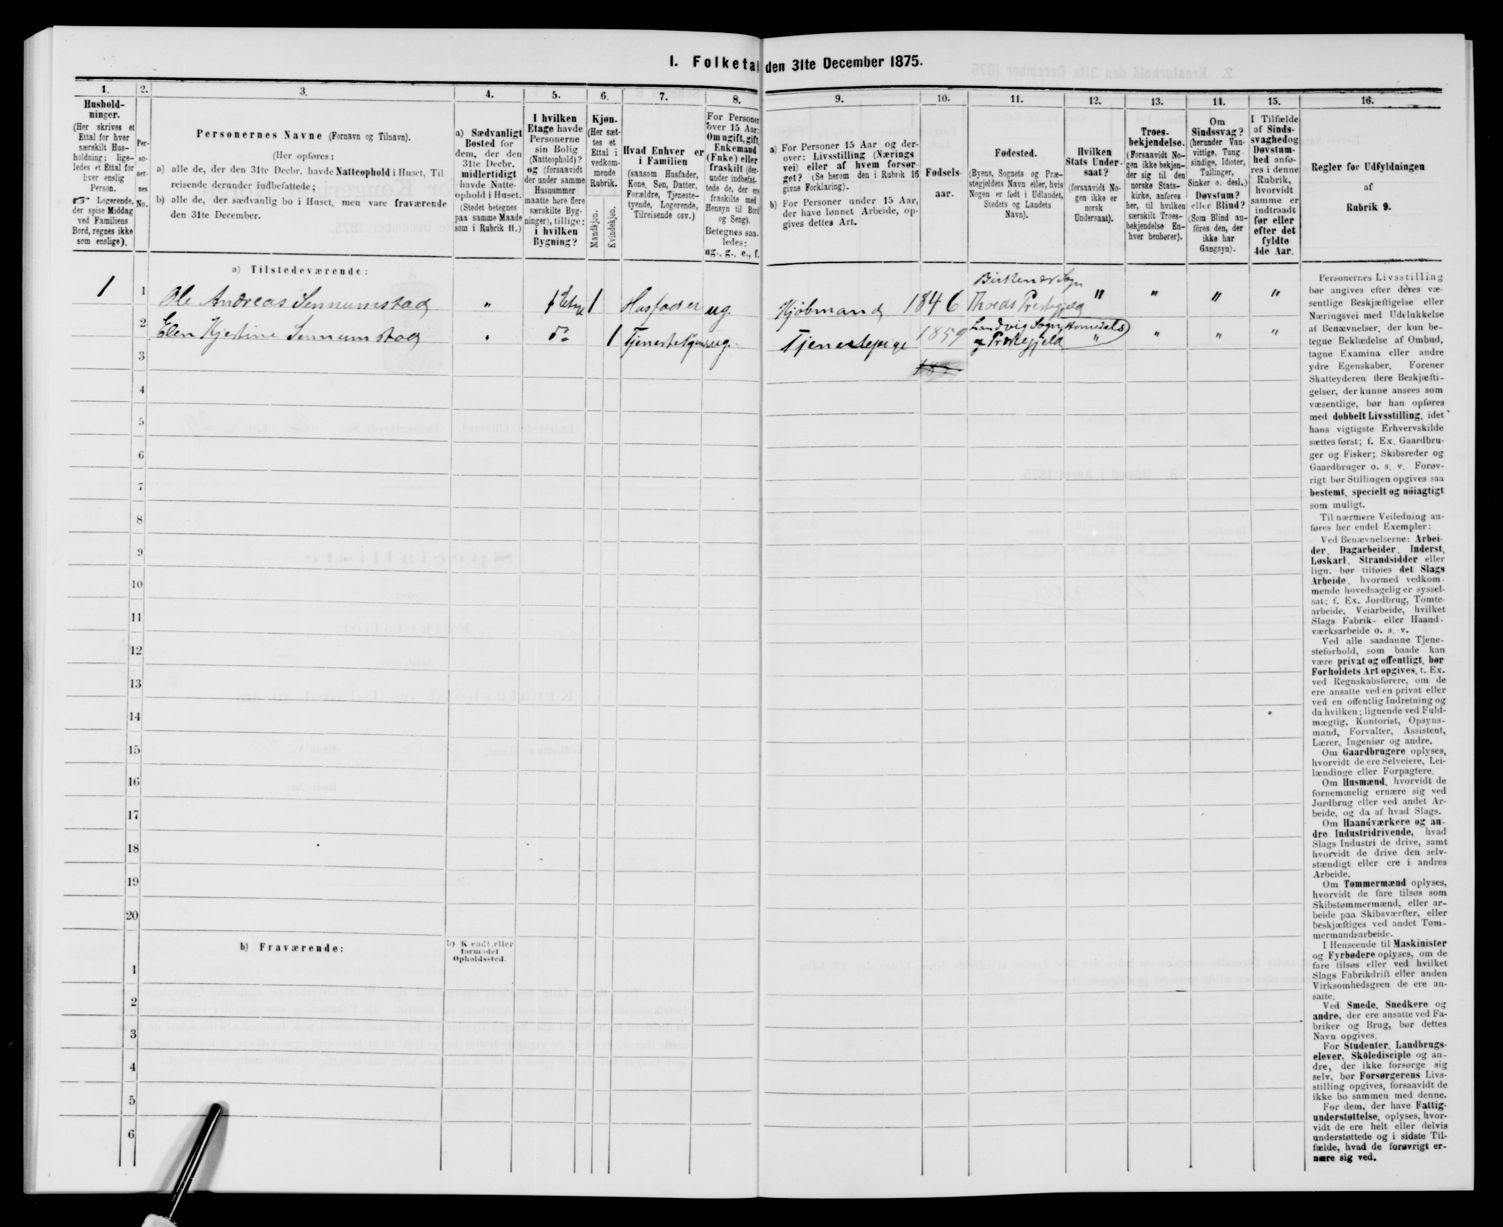 I. Folketal den 31te December 1875.
1.
2.
3.
4.
5.
6.
7.
8.
9.
10.
11.
12.
13.
14.
15.
16.
Hushold-
ninger.
(Her skrives et
Ettal for hver
særskilt Hus-
holdning; lige-
ledes et Ettal for
hver enslig
Person.
☞ Logerende,
der spise Middag
ved Familiens
Bord, regnes ikke
som enslige).
Per-
so-
ner-
nes
No.
Personernes Navne (Fornavn og Tilnavn).
(Her opføres:
a) alle de, der den 31te Decbr. havde Natteophold i Huset, Til
reisende derunder indbefattede;
b) alle de, der sædvanlig bo i Huset, men vare fraværende
den 31te December.
a) Sædvanligt
Bosted for
dem, der den
31te Decbr.
midlertidigt
havde Natte-
ophold i Huset.
(Stedet betegnes
paa samme Maade
som i Rubrik 11.)
I hvilken
Etage havde
Personerne
sin Bolig
(Natteophold)?
og (forsaavidt
der under samme
Husnummer
maatte høre flere
særskilte Byg-
ninger), tillige:
i hvilken
Bygning?
Kjøn.
(Her sæt-
tes et
Ettal i
vedkom-
mende
Rubrik.
Mandkjøn.
Kvindekjøn.
Hvad Enhver er
i Familien
(saasom Husfader,
Kone, Søn, Datter,
Forældre, Tjeneste-
tyende, Logerende,
Tilreisende osv.)
For Personer
over 15 Aar:
Om ugift, gift,
Enkemand
(Enke) eller
fraskilt (der-
under indbefat-
tede de, der ere
fraskilte med
Hensyn til Bord
og Seng).
Betegnes saa-
ledes:
ug., g., e., f.
a) For Personer 15 Aar og der-
over: Livsstilling (Nærings
vei) eller af hvem forsør-
get? (Se herom den i Rubrik 16
givne Forklaring).
b) For Personer under 15 Aar,
der have lønnet Arbeide, op-
gives dettes Art.
Fødsels-
aar.
Fødested.
(Byens, Sognets og Præ-
stegjeldets Navn eller, hvis
Nogen er født i Udlandet,
Stedets og Landets
Navn).
Hvilken
Stats Under-
saat?
(forsaavidt No-
gen ikke er
norsk
Undersaat).
Troes-
bekjendelse.
(Forsaavidt No-
gen ikke bekjen-
der sig til den
norske Stats-
kirke, anføres
her, til hvilken
særskilt Troes-
bekjendelse En-
hver henhører).
Om
Sindssvag?
(herunder Van-
vittige, Tung-
sindige, Idioter,
Tullinger,
Sinker o. desl.)
Døvstum?
eller Blind?
(Som Blind an-
føres den, der
ikke har
Gangsyn).
I Tilfælde
af Sinds-
svaghed og
Døvstum-
hed anfø-
res i denne
Rubrik,
hvorvidt
samme er
indtraadt
før eller
efter det
fyldte
4de Aar.
Regler for Udfyldningen
af
Rubrik 9.
a) Tilstedeværende:
1 1 Ole Andreas Sennumstad " 1 Etage 1 Husfader ug. Kjøbmand 1846 Birkenes Sogn
Thveds Prestegjeld " " " "
2 Elen Kjerstine Sennumstad " do 1 Tjenestepige ug. Tjenestepige 1859 Landvig Sogn, Homedals
og Præstegjeld " " " "
3
4
5
6
7
8
9
10
11
12
13
14
15
16
17
18
19
20
b) Fraværende:
b) Kjendt eller
formodet
Opholdssted.
1
2
3
4
5
6
Personernes Livsstilling
bør angives efter deres væ-
sentlige Beskjæftigelse eller
Næringsvei med Udelukkelse
af Benævnelser, der kun be-
tegne Beklædelse af Ombud,
tagne Examina eller andre
ydre Egenskaber. Forener
Skatteyderen flere Beskjæfti-
gelser, der kunne ansees som
væsentlige, bør han opføres
med dobbelt Livsstilling, idet
hans vigtigste Erhvervskilde
sættes først; f. Ex. Gaardbru-
ger og Fisker; Skibsreder og
Gaardbruger o. s. v. Forøv-
rigt bør Stillingen opgives saa
bestemt, specielt og nöiagtigt
som muligt.
Til nærmere Veiledning an-
føres her endel Exempler:
Ved Benævnelserne: Arbei-
der, Dagarbeider, Inderst,
Løskarl, Strandsidder eller
lign. bør tilføies det Slags
Arbeide, hvormed vedkom-
mende hovedsagelig er syssel-
sat; f. Ex. Jordbrug, Tomte-
arbeide, Veiarbeide, hvilket
Slags Fabrik- eller Haand-
værksarbeide o. s. v.
Ved alle saadanne Tjene-
steforhold, som baade kan
være privat og offentligt, bør
Forholdets Art opgives, f. Ex.
ved Regnskabsførere, om de
ere ansatte ved en privat eller
ved en offentlig Indretning og
da hvilken; lignende ved Fuld-
mægtig, Kontorist, Opsyns-
mand, Forvalter, Assistent,
Lærer, Ingeniør og andre.
Om Gaardbrugere oplyses,
hvorvidt de ere Selveiere, Lei-
lændinge eller Forpagtere.
Om Husmænd, hvorvidt de
fornemmelig ernære sig ved
Jordbrug eller ved andet Ar-
beide, og da af hvad Slags.
Om Haandværkere og an-
dre Industridrivende, hvad
Slags Industri de drive, samt
hvorvidt de drive den selv-
stændigt eller ere i andres
Arbeide.
Om Tømmermænd oplyses,
hvorvidt de fare tilsøs som
Skibstømmermænd, eller ar-
beide paa Skibsværfter, eller
beskjæftiges ved andet Tøm-
mermandsarbeide.
I Henseende til Maskinister
og Fyrbødere oplyses, om de
fare tilsøs eller ved hvilket
Slags Fabrikdrift eller anden
Virksomhedsgren de ere an-
satte.
Ved Smede, Snedkere og
andre, der ere ansatte ved Fa-
briker og Brug, bør dettes
Navn opgives.
For Studenter, Landbrugs-
elever, Skoledisciple og an-
dre, der ikke forsørge sig
selv, bør Forsørgerens Livs-
stilling opgives, forsaavidt de
ikke bo sammen med denne.
For dem, der have Fattig-
understøttelse, oplyses, hvor-
vidt de ere helt eller delvis
understøttede og i sidste Til-
fælde, hvad de forøvrigt er-
nære sig ved.